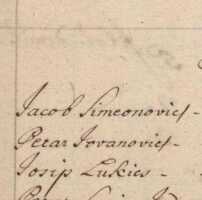 Jacob Simeonovics -
Petar Jovanovics -
Josip Lukics -